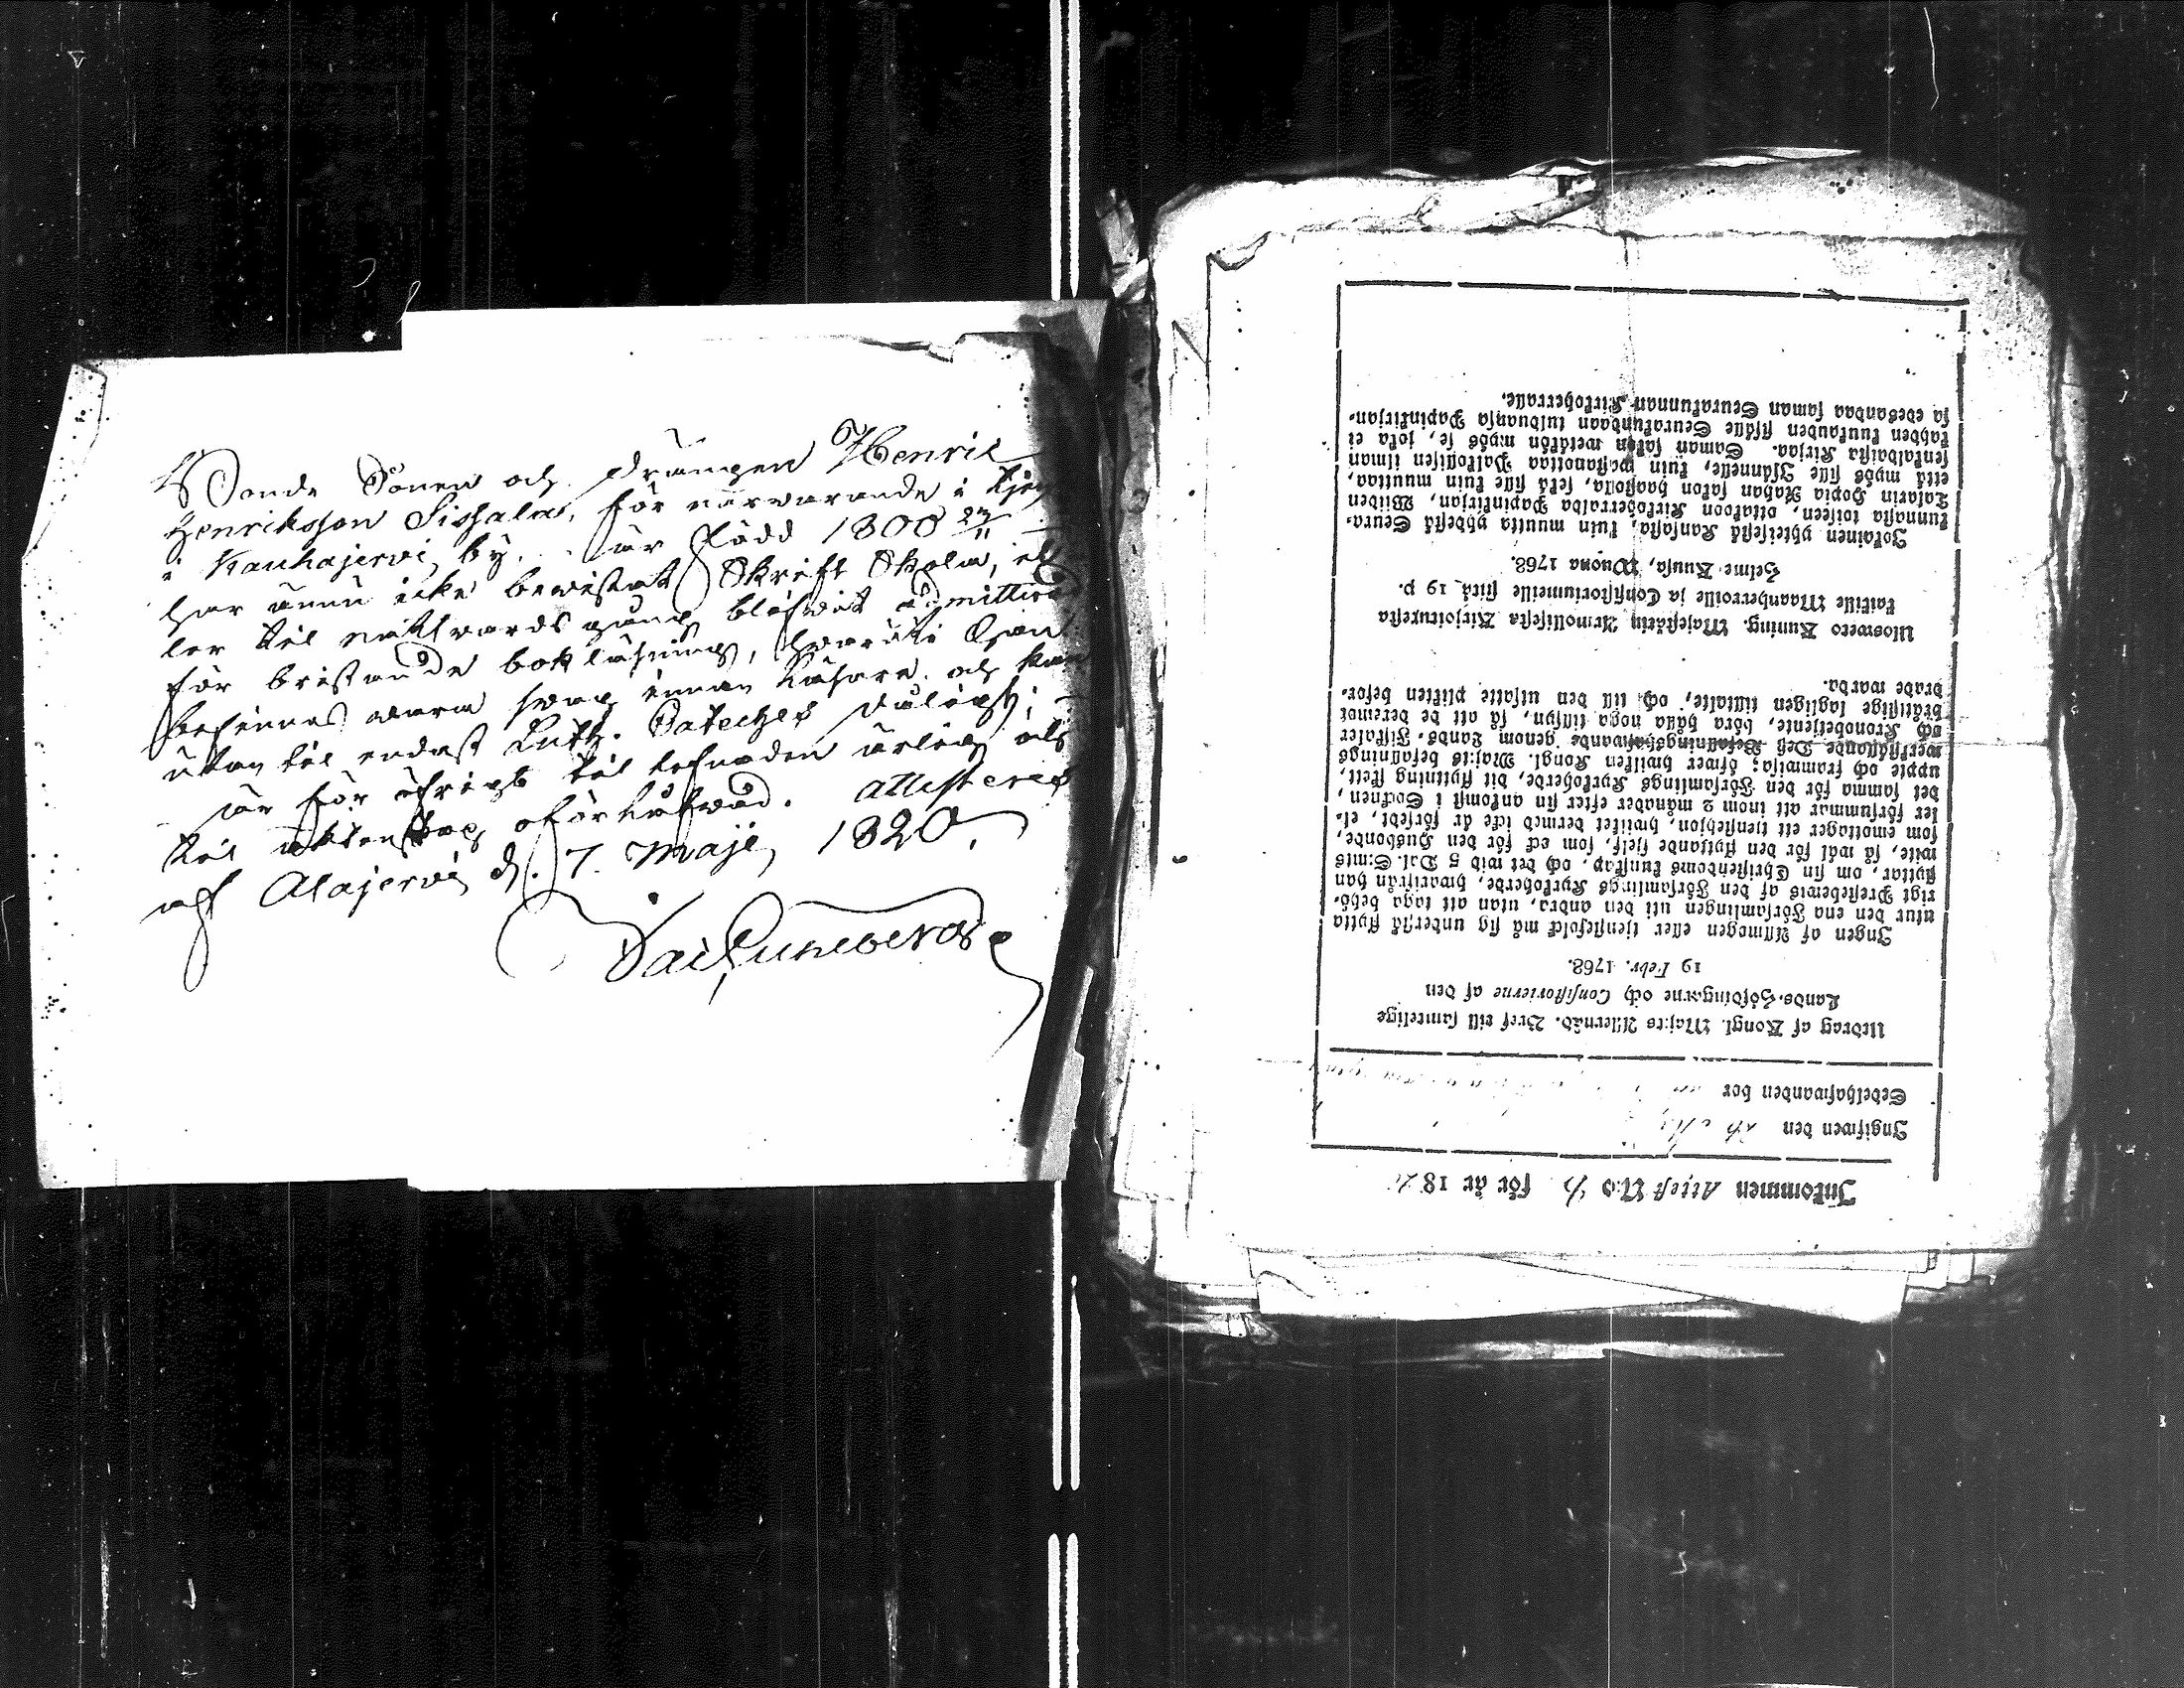 Bonde Sonen och drängen Henric
Henriksson Sissala, för närvarande i
i Kauhajervi by, är född 1800 27/11
har ännu icke bewistat Skrift Skola, el
ler til nattwards gång blifwit admitterad
för bristande bokläsning, hwaruti han
befinnes wara swag innan läsare, och kan
utan til endast Luth. Cateches
är för öfrigt til lefnaden ärlig och
til äktenskap oförhindrad. Attesteras
af Alajervi d. 7. Maji 1820.
Inkommen Attest N:o för år 18
Ingifwen den
Sedelhafwanden bor
Utdrag af Kongl. Maj:ts Allernåd. Bref till samtelige
Lands-Höfdingarne och Consistorierne af den
19 Febr. 1768.
Ingen af Allmogen eller tjenstefolck må sig understå flytta
utur den ena Församlingen uti den andra, utan att taga behö-
rigt Prestebewis af den Församlings Kyrkoherde, hwarifrån han
flyttar, om sin Christendoms kunskap, och det wid 5 Dal. S:mts
wite, så wäl för den flyttande sjelf, som ock för den Husbonde,
som emottager ett tjenstehjon, hwilket dermed icke är försedt, el-
ler försummar att inom 2 månader efter sin ankomst i Sochnen,
det samma för den Församlings Kyrkoherde, dit flyttning skett,
uppte och framwisa; öfwer hwilken Kongl. Maj:ts befallnings
werkställande Dess Befallningshafwande genom Lands-Fiskaler
och Kronobetjente, böra hålla noga tillsyn, så att de deremot
brottslige lagligen tilltalte, och till den utsatte plikten befor-
drade warda.
Ulosweto Kuning. Majestätin Armollisesta Kirjoituxesta
kaikille Maanherroille ja Consistoriumeille siitä 19 p.
Helme-Kuusa, Wuona 1768.
Jokainen yhteisestä Kansasta, kuin muutta yhdestä Seura-
kunnasta toiseen, ottakoon Kirkoherralda Papinkirjan, Wiiden
Talarin Hopia Rahan sakon haastolla, sekä sille kuin muuttaa,
että myös sille Isännelle, kuin wastanottaa Palkollisen ilman
senkaldaista Kirjaa. Saman sakon wetäkön myös se, joka ei
kahden kuukauden sisälle Seurakundaan tulduansa Papinkirjan-
sa edesandaa saman Seurakunnan Kirkoherralle.